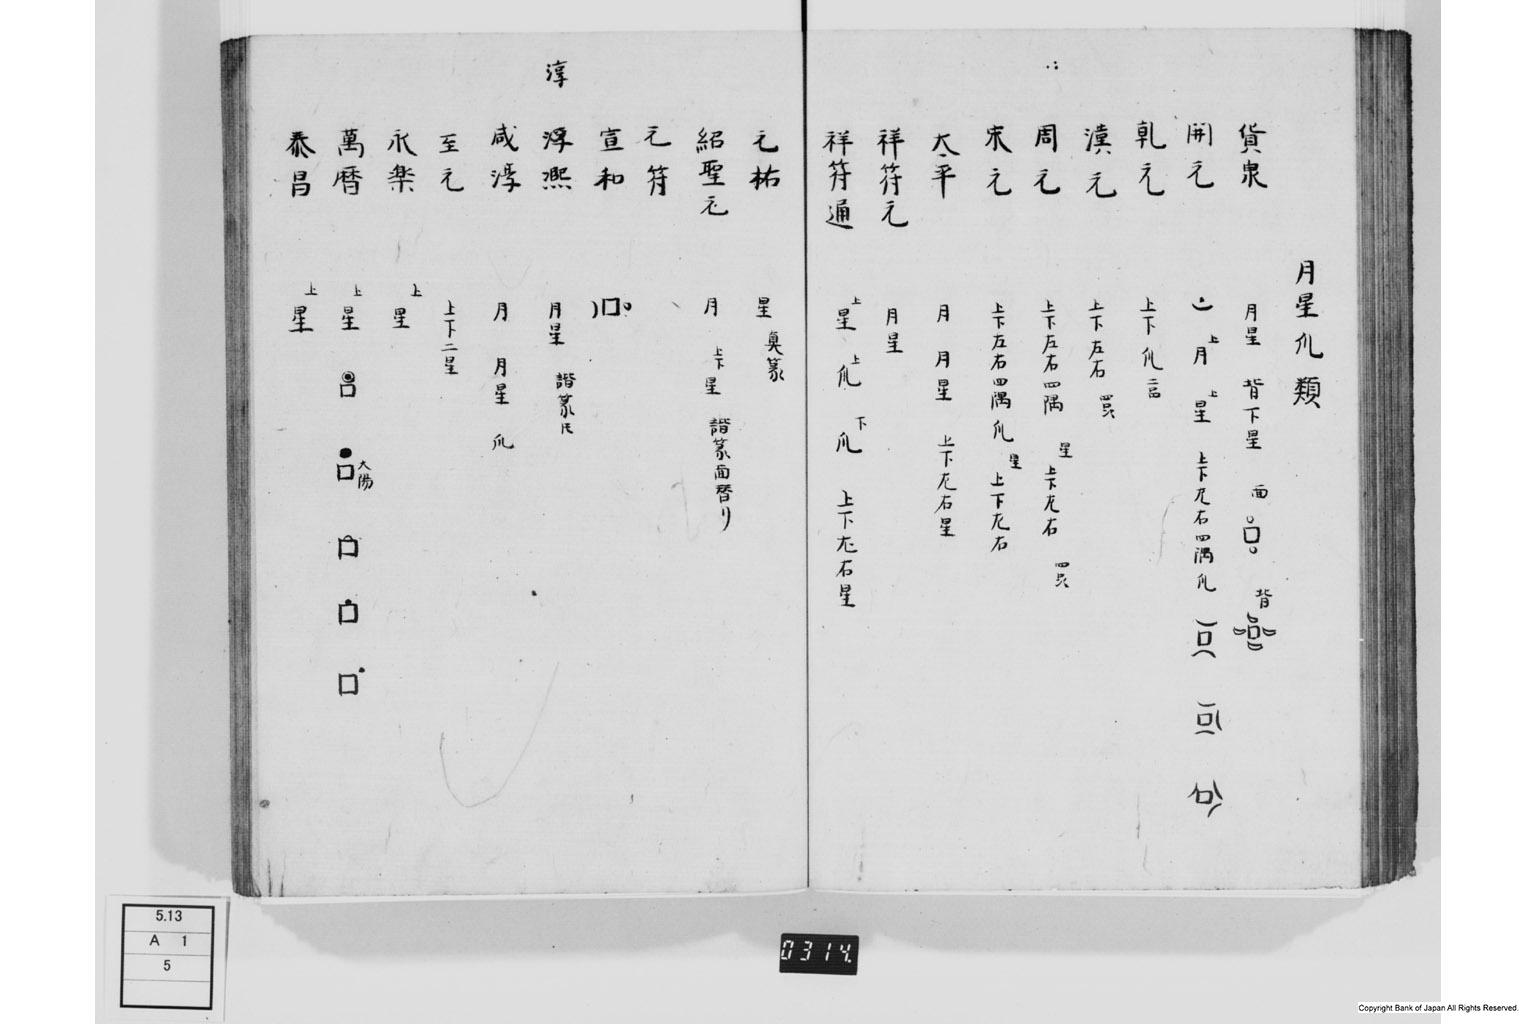 月星爪類
貨泉 月星 背下星 面 背
開元 上月 上星 上下左右四隅爪
乾元 上下爪
漢元 上下左右
周元 上下左右四隅 星 上下左右
宋元 上下左右四隅爪 星 上下左右
太平 月 月星 上下左右星
祥符元 月星
祥符通 上星 上爪 下爪 上下左右星
元祐 星 真篆
紹聖元 月 上下星 諧篆面替リ
元符
宣和
淳
淳熙 月星 諧篆
咸淳 月 月星 爪
至元 上下二星
永楽 上星
萬暦 上星 大陽
泰昌 上星
5.13
A 1
5
0314
Copyright Bank of Japan All Rights Reserved.